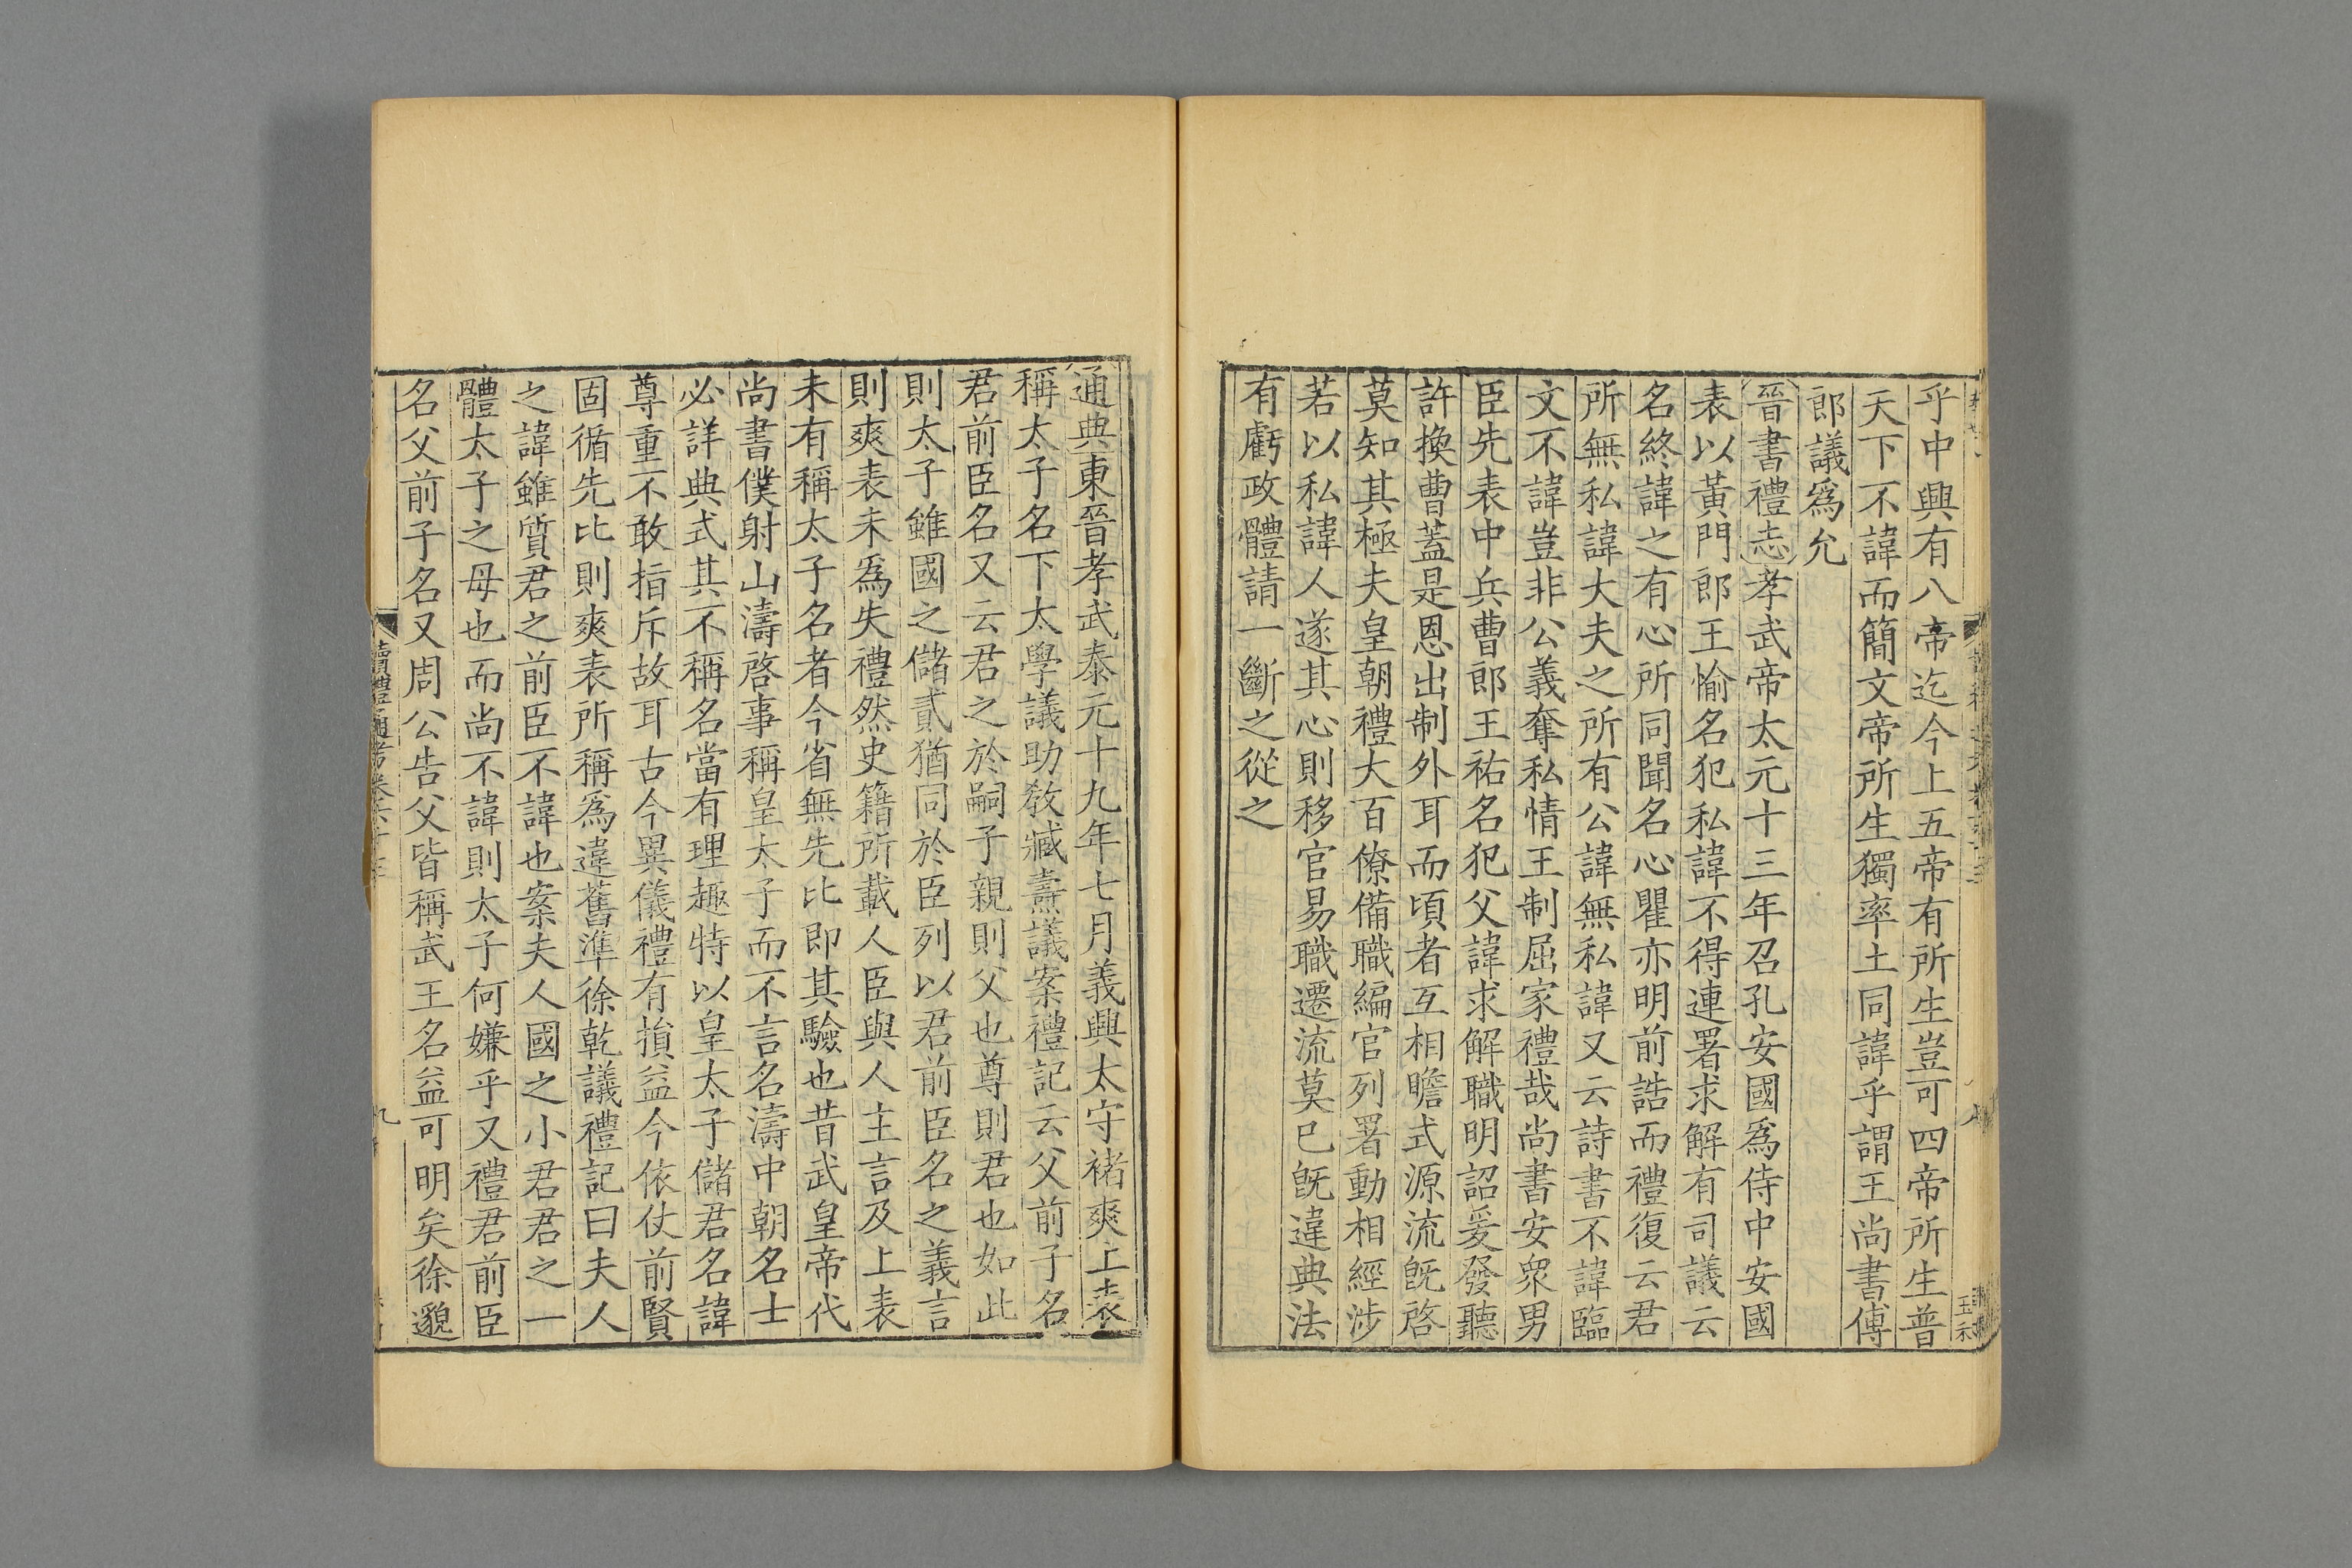 乎中興有八帝迄今上五帝有所生豈可四帝所生普
天下不諱而簡文帝所生獨率土同諱乎謂王尚書傅
郎議爲允
晉書禮志孝武帝太元十三年召孔安國爲侍中安國
表以黃門郎王愉名犯私諱不得連署求解有司議云
名終諱之有心所同聞名心瞿亦明前誥而禮復云君
所無私諱大夫之所有公諱無私諱又云詩書不諱臨
文不諱豈非公義奪私情王制屈家禮哉尚書安衆男
臣先表中兵曹郎王祐名犯父諱求解職明詔爰發聽
許換曹蓋是恩出制外耳而頃者互相瞻式源流旣啓
莫知其極夫皇朝禮大百僚備職編官列署動相經涉
若以私諱人遂其心則移官易職遷流莫已旣違典法
有虧政體請一斷之從之
通典東晉孝武泰元十九年七月義興太守褚爽上表
稱太子名下太學議助敎臧燾議案禮記云父前子名
君前臣名又云君之於嗣子親則父也尊則君也如此
則太子雖國之儲貳猶同於臣列以君前臣名之義言
則爽表未爲失禮然史籍所載人臣與人主言及上表
未有稱太子名者今省無先比即其驗也昔武皇帝代
尚書僕射山濤啓事稱皇太子而不言名濤中朝名士
必詳典式其不稱名當有理趣特以皇太子儲君名諱
尊重不敢指斥故耳古今異儀禮有損益今依仗前賢
固循先比則爽表所稱爲違舊準徐乾議禮記曰夫人
之諱雖質君之前臣不諱也案夫人國之小君君之一
體太子之母也而尚不諱則太子何嫌乎又禮君前臣
名父前子名又周公告父皆稱武王名益可明矣徐邈
讀禮通考卷六十三
九